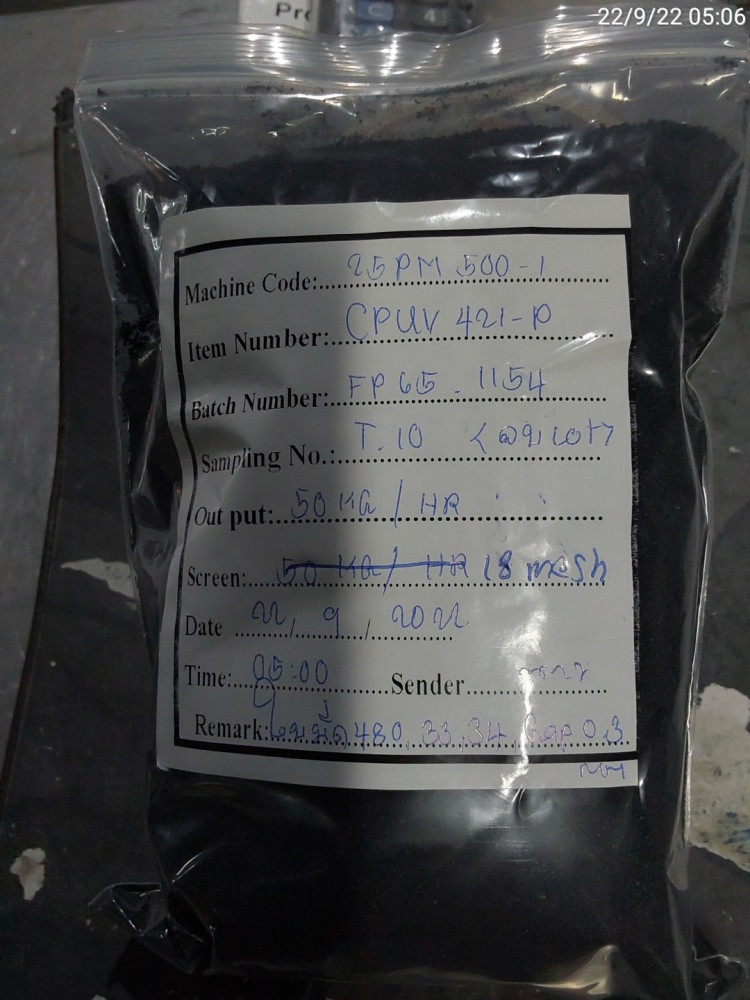 Pr
C 4
22/9/22 05:06
Machine Code: 25PM 500-1
Item Number: CPUV 421-P
Batch Number: FP65-1154
Sampling No.: T.10
Out put: 50 KG / HR
Screen: 50 KG / HR 18 mesh
Date 22 / 9 / 2022
Time: 05:00 Sender
Remark: ใบมีด 480, 33,34, Gap 0.3